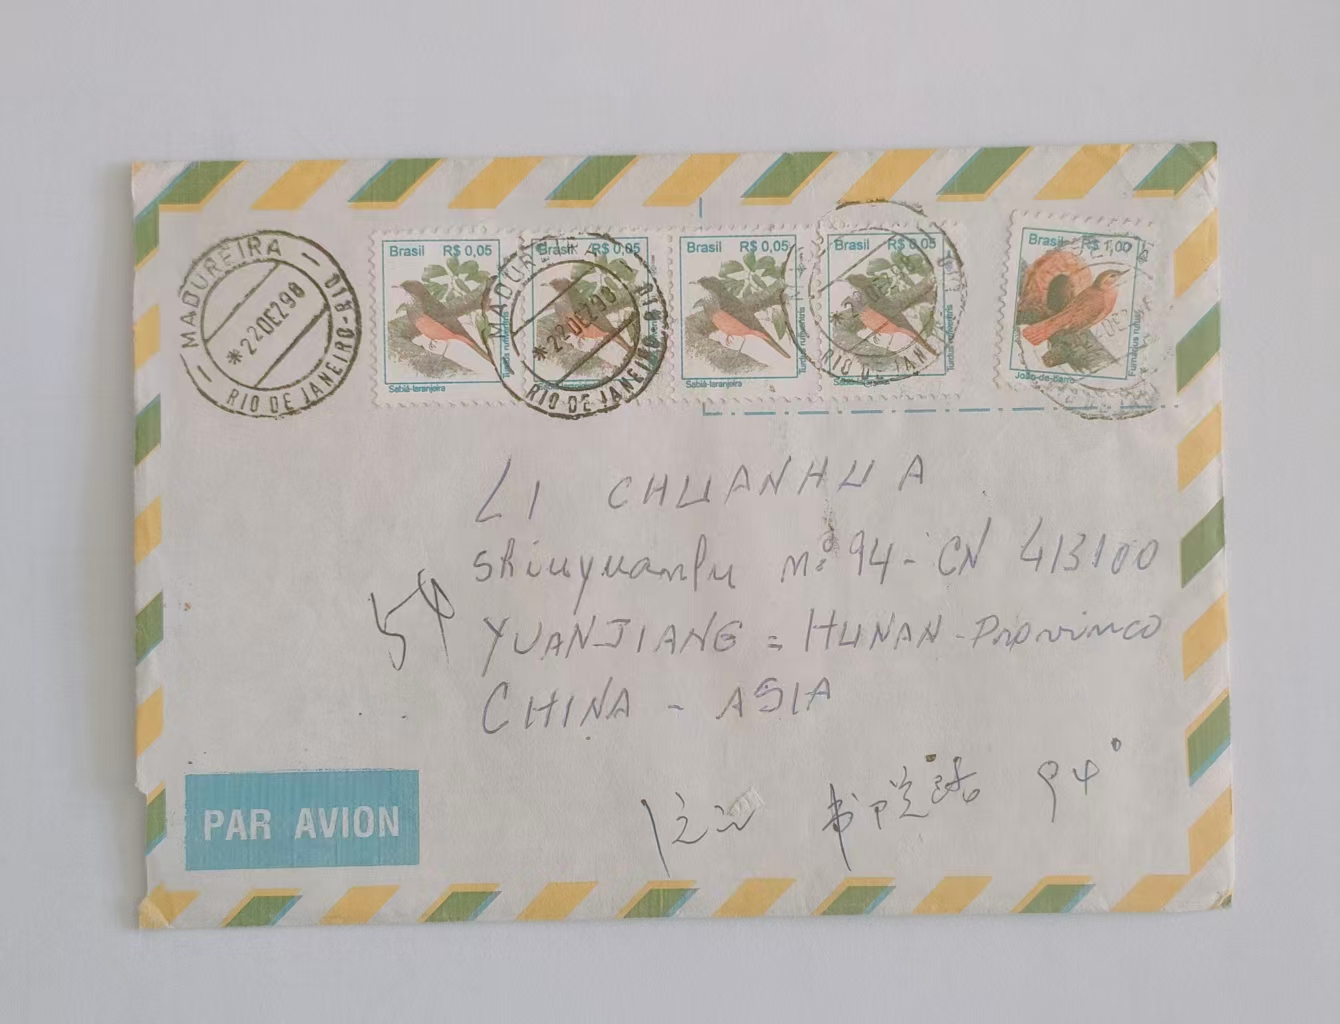 MADUREIRA - RJ
018-0
* 22DEZ98
RIO DE JANEIRO
Brasil R$ 0,05
Turdus rufiventris
Sabiá-laranjeira
Brasil R$ 0,05
MADUREIRA
* 22DEZ98
RIO DE JANEIRO
Brasil R$ 0,05
Turdus rufiventris
Sabiá-laranjeira
Brasil R$ 0,05
Turdus rufiventris
22DEZ98
RIO DE JANEIRO
Brasil R$ 1,00
Furnarius rufus
João-de-barro
LI CHUANHUA
Shiuyuanlu nº 94 - CN 413100
54
YUANJIANG = HUNAN - Province
CHINA - ASIA
沅江 书院路 94°
PAR AVION